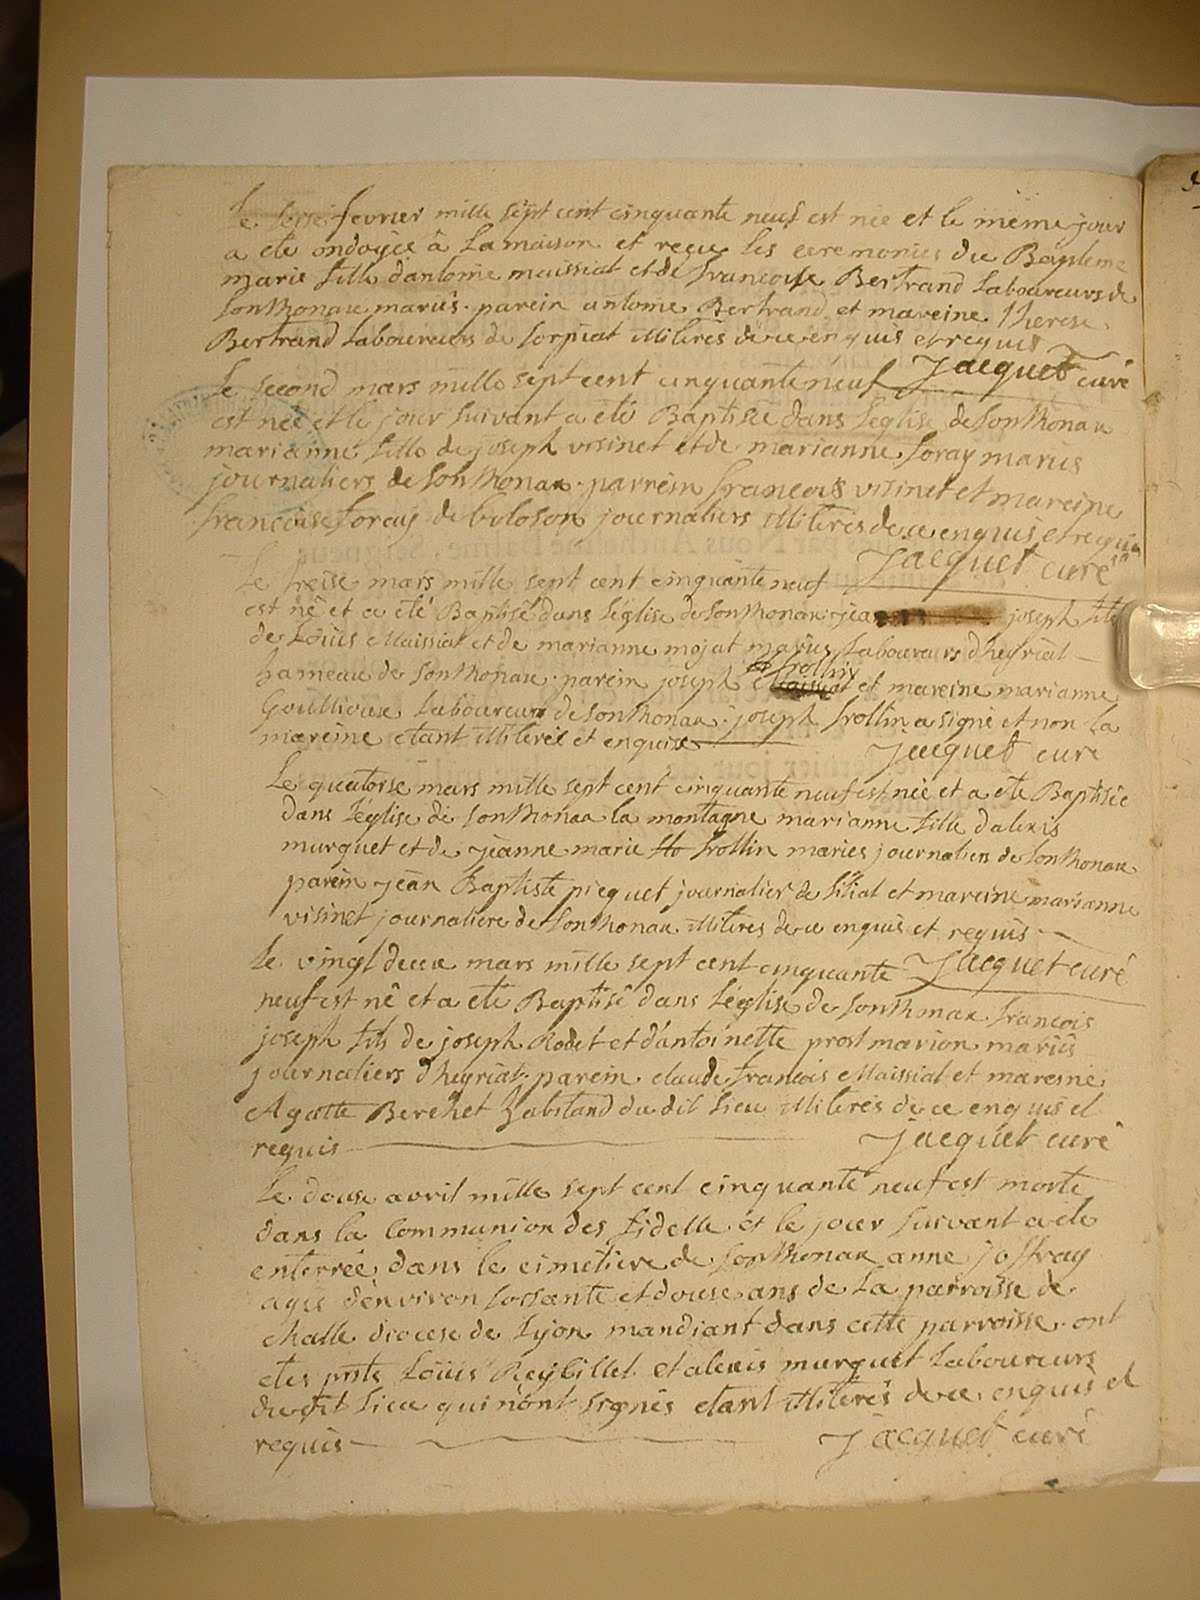 Le fevrier mille sept cent cinquante neuf est née et le même jour
a eté ondoyée à La maison et reçu les ceremonies du Bapteme
marie fille d'antoine maissiat et de francoise Bertrand Laboureurs de
Sonthonau mariés. parein antoine Bertrand et mareine Therese
Bertrand Laboureurs de Sorpiat illiterés de ce enquis et requis
Jacquet curé
Le second mars mille sept cent cinquante neuf
est née et le jour suivant a eté Baptisée dans L'eglise de Sonthonau
marianne fille de joseph visinet et de marianne foray mariés
journaliers de Sonthonax. parrein francois visinet et mareine
francoise foray de boloson journaliers illiterés de ce enquis et requis
Jacquet curé
Le treise mars mille sept cent cinquante neuf
est né et a eté Baptisé dans L'eglise de Sonthonau jean joseph fils
de Loüis Maissiat et de marianne mojat mariés Laboureurs d'heyriat
hameau de Sonthonau. parein joseph trollin et mareine marianne
Gouilloux Laboureurs de Sonthonau. joseph trollin a signé et non la
mareine etant illiterée et enquise
Jacquet curé
Le quatorse mars mille sept cent cinquante neuf est née et a eté Baptisée
dans L'eglise de Sonthonau la montagne marianne fille d'alexis
murguet et de jeanne marie trollin mariés journaliers de Sonthonau
parein jean Baptiste picquet journalier de filiat et mareine marianne
visinet journaliere de Sonthonau illiterés de ce enquis et requis
Jacquet curé
Le vingt deux mars mille sept cent cinquante
neuf est né et a eté Baptisé dans L'eglise de Sonthonax francois
joseph fils de joseph Rodet et d'antoinette prost marion mariés
journaliers d'heyriat. parein claude francois Maissiat et maresne
Agatte Berchet habitand du dit Lieu illiterés de ce enquis et
requis
Jacquet curé
Le douse avril mille sept cent cinquante neuf est morte
dans la Communion des fidelle et le jour suivant a eté
enterrée dans le cimetiere de Sonthonax anne joffray
agée d'environ sossante et douse ans de La parroisse de
challe diocese de Lyon mandiant dans cette parroisse. ont
etés pnts Loüis Reybillet et alexis murguet Laboureurs
du dit Lieu qui n'ont signés etant illiterés de ce enquis et
requis
Jacquet curé